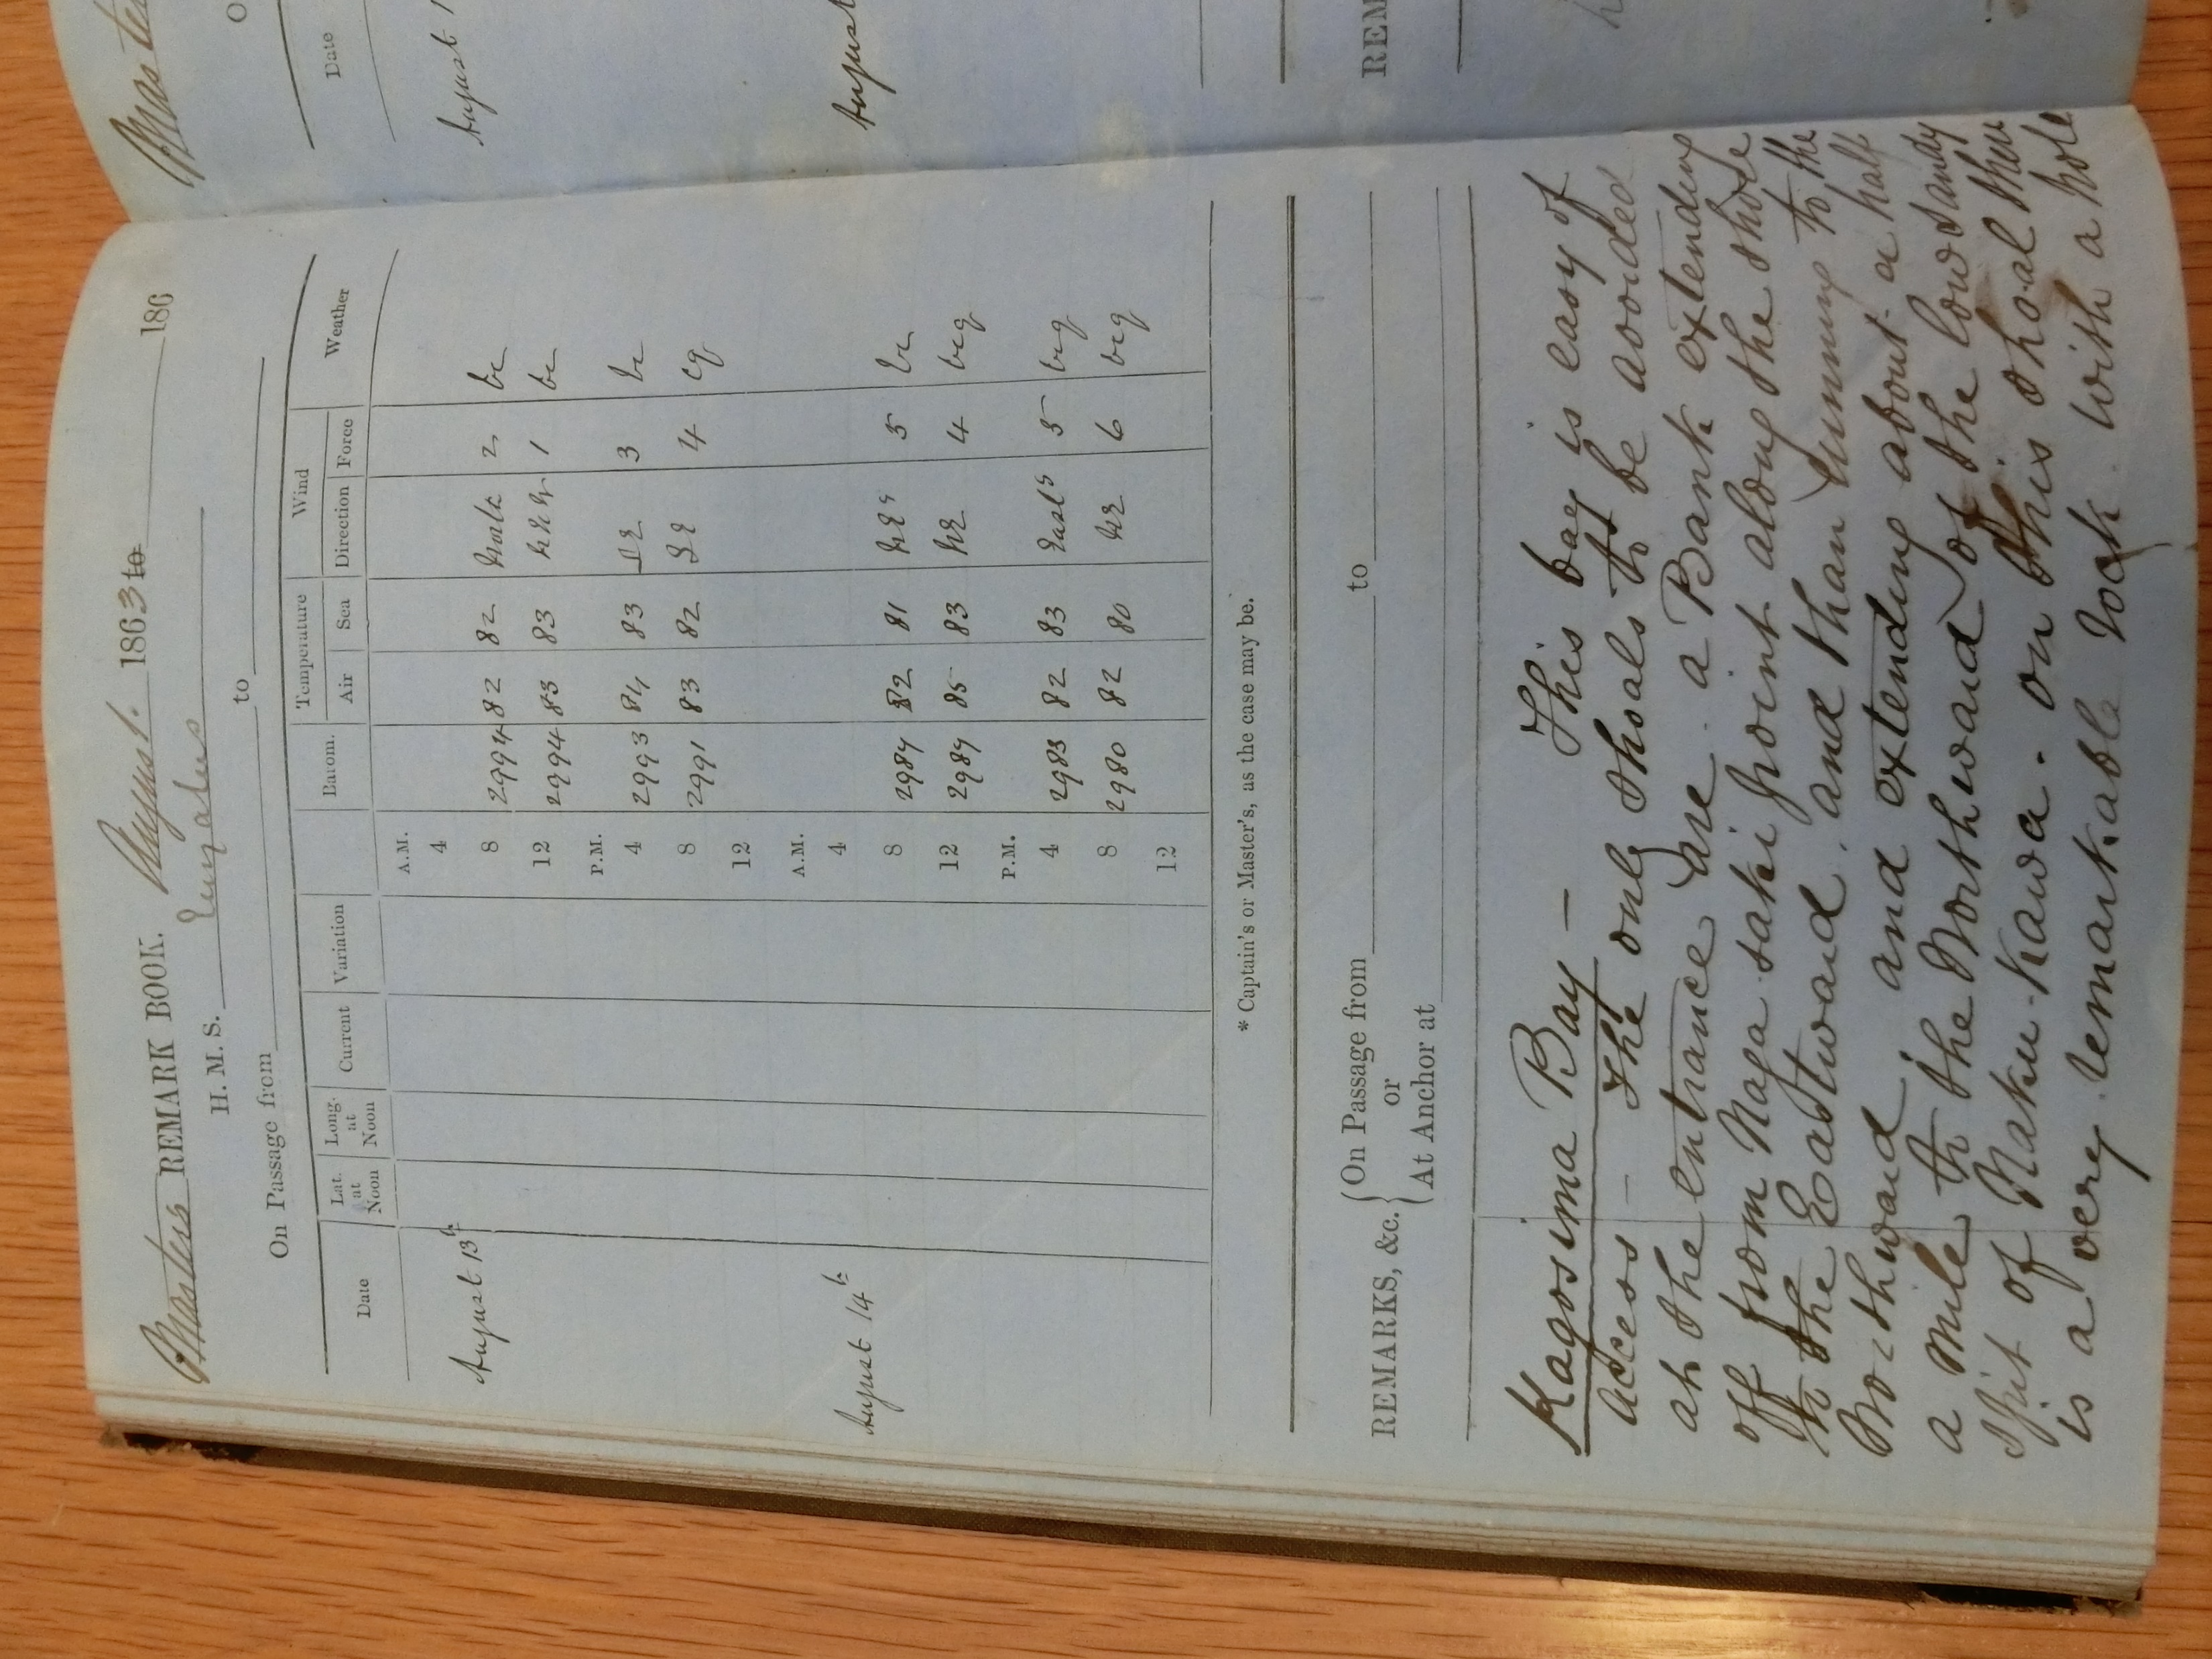 Master's REMARK BOOK. August. 1863 to 186
H. M. S. Euryalus
On Passage from to
Date Lat. at Noon Long. at Noon Current Variation Barom. Temperature Air Sea Wind Direction Force Weather
A.M.
August 13th 4
8 2994 82 82 North 2 bc
12 2994 83 83 1 bc
P.M.
4 2993 84 83 SE 3 bc
8 2991 83 82 SE 4 cq
12
A.M.
August 14th 4
8 2984 82 81 5 bc
12 2984 85 83 NE 4 bcq
P.M.
4 2983 82 83 East 5 bcq
8 2980 82 80 NE 6 bcq
12
* Captain's or Master's, as the case may be.
REMARKS, &c. { On Passage from to
or
At Anchor at
Kagosima Bay — This bay is easy of
access — The only shoals to be avoided
at the entrance are. a Bank extending
off from Naga saki point along the shore
to the Eastward. and than running to the
Northward and extending about a half
a mile to the Northward of the low sandy
spit of Naku-Kawa. on this shoal there
is a very remarkable rock with a hole
Master
O
Date
August 1
August
REM